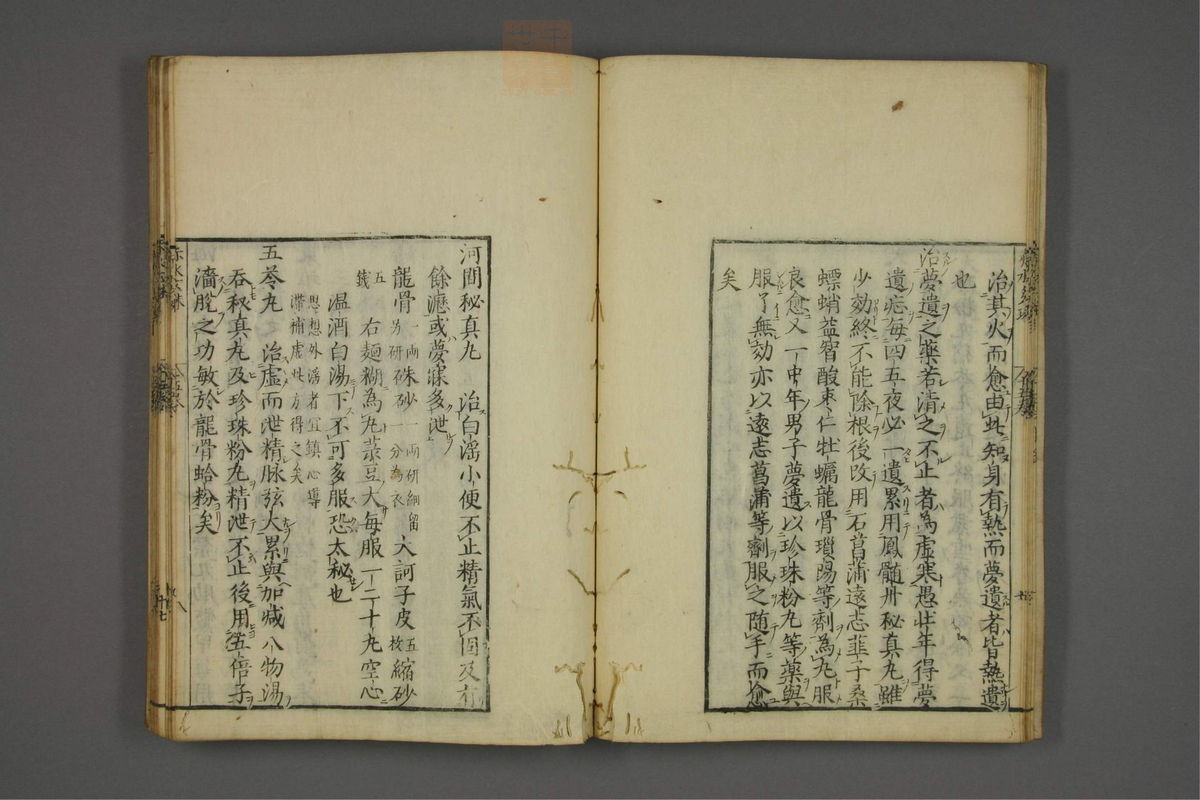 治其火而愈由此知身有熱而夢遺者皆熱遺
也
治夢遺之藥若清之不止者為虛寒愚壯年得夢
遺症每四五夜必一遺累用鳳髓丹秘真丸雖
少効終不能除根後改用石菖蒲遠志韮子桑
螵蛸益智酸棗仁牡蠣龍骨瑣陽等劑為丸服
良愈又一中年男子夢遺以珍珠粉丸等藥與
服了無効亦以遠志菖蒲等劑服之随手而愈
矣
河間秘真丸　治白滛小便不止精氣不固及有
餘瀝或夢寐多泄
龍骨一兩另研 硃砂一兩研細留一分為衣 大訶子皮五枚 縮砂
五錢　右麵糊為丸菉豆大每服一二十丸空心
温酒白湯下不可多服恐太秘也
思想外滛者宜鎮心導
滯補虛此方得之矣
五苓丸　治虛而泄精脉弦大累與加減八物湯
吞秘真丸及珍珠粉丸精泄不止後用五倍子
濇脫之功敏於龍骨蛤粉矣